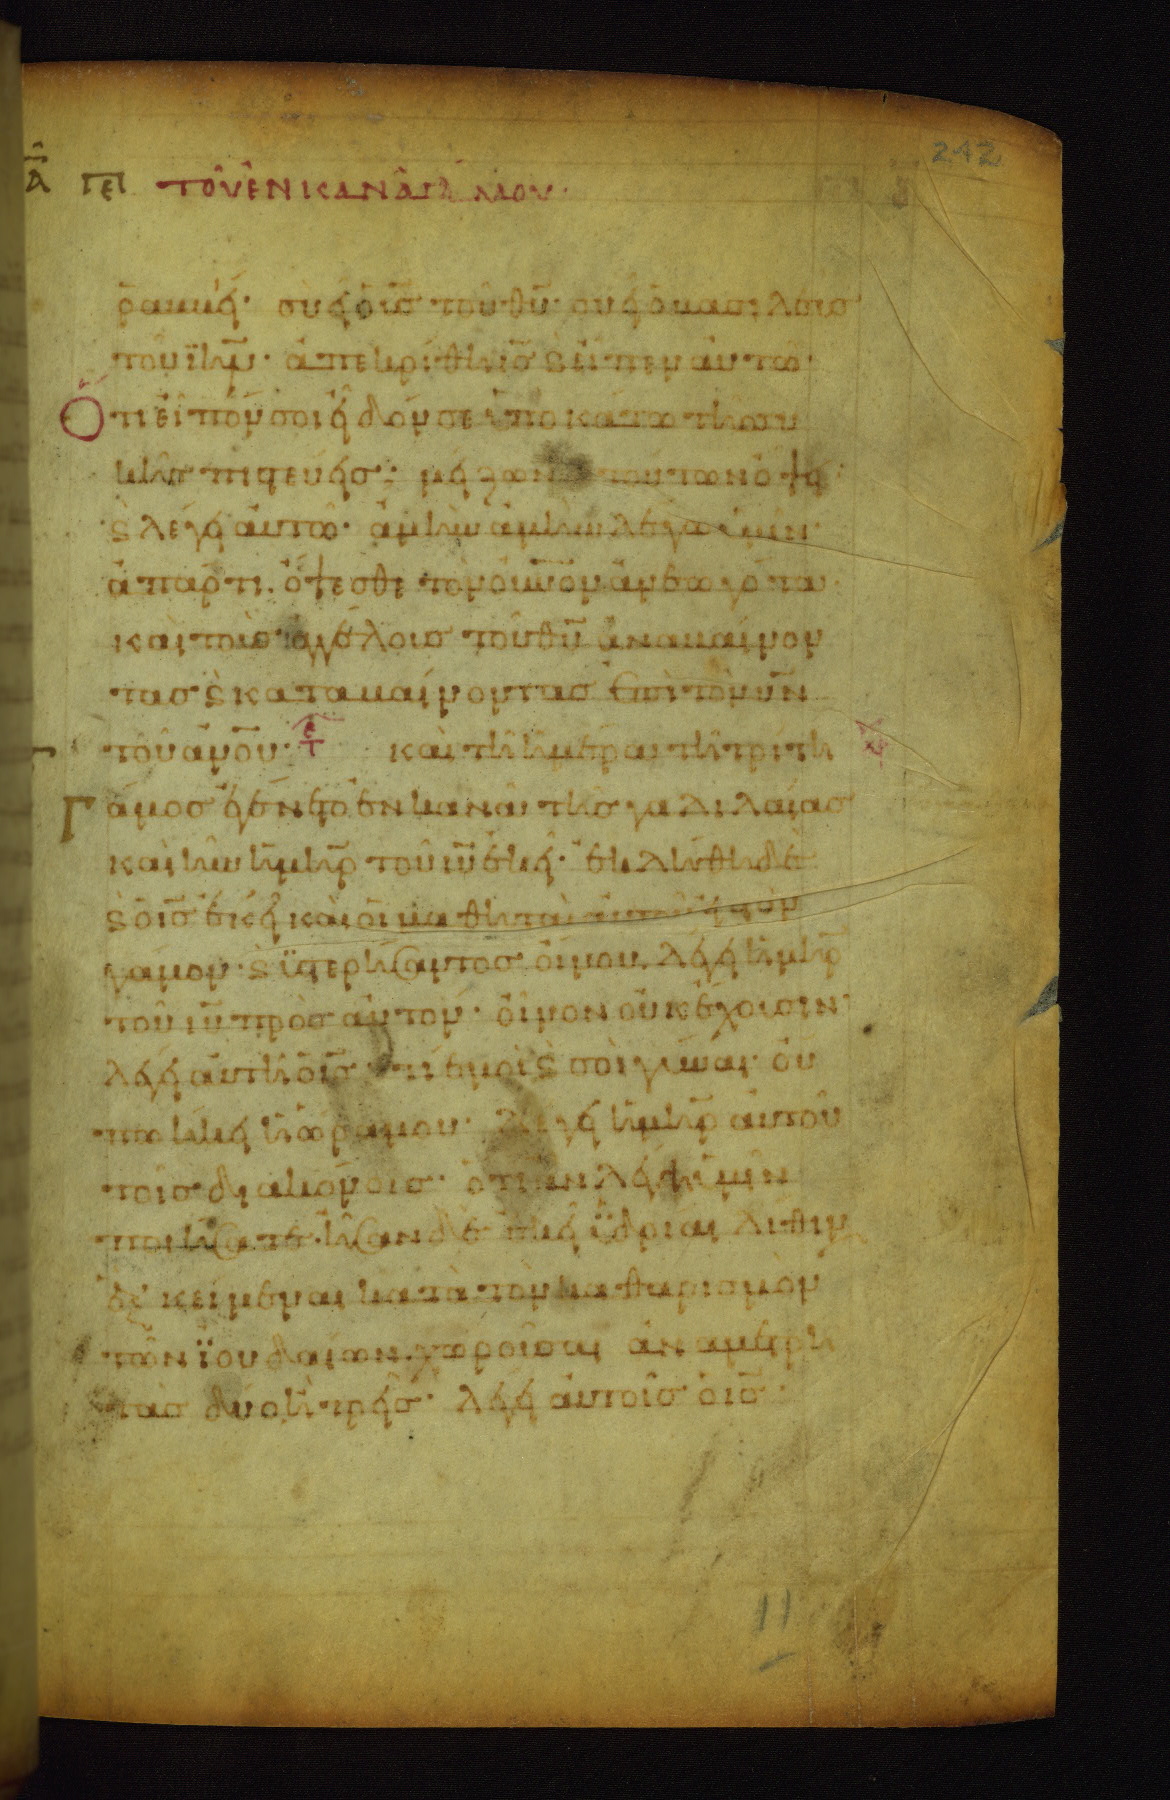 242
Α πε τοῦ ἐν κανᾶ γάμου·
ραββεί· σὺ εἶ ὁ ὑ̅ς̅ τοῦ θ̅υ̅ σὺ εἶ ὁ βασιλεὺς
τοῦ ἰ̅η̅λ̅· ἀπεκρίθη ὁ ι̅ς̅ ϗ εἶπεν αὐτῶ·
Ὅτι εἶπόν σοι εἶδόν σε ὑποκάτω τῆς συ
κῆς πιστεύεις· μείζων τούτων ὄψει·
ϗ λέγει αὐτῶ· ἀμὴν ἀμὴν λέγω ὑμῖν·
ἀπάρτι. ὄψεσθε τὸν ο̅υ̅ν̅ο̅ν̅ ἀνεωγότα
καὶ τοὺς ἀγγέλους τοῦ θ̅υ̅ ἀναβαίνον
τας ϗ καταβαίνοντας ἐπὶ τὸν υ̅ν̅
τοῦ α̅ν̅ο̅υ̅· τε καὶ τῆ ἡμέρα τῆ τρίτη
Γάμος ἐγένετο ἐν κανᾶ τῆς γαλιλαίας
καὶ ἦν ἡ μ̅η̅ρ̅ τοῦ ι̅υ̅ ἐκεῖ· ἐκλήθη δὲ
ϗ ὁ ι̅ς̅ ἐκεῖ καὶ οἱ μαθηταὶ αὐτοῦ εἰς τὸν
γάμον· ϗ ὑστερήσαντος οἴνου. λέγει ἡ μ̅η̅ρ̅
τοῦ ι̅υ̅ πρὸς αὐτόν· οἶνον οὐκ ἔχουσιν·
λέγει αὐτῆ ὁ ι̅ς̅· τί ἐμοὶ ϗ σοὶ γύναι· οὔ
πω ἥκει ἡ ὥρα μου· λέγει ἡ μ̅η̅ρ̅ αὐτοῦ
τοῖς διακόνοις· ὅτι ἂν λέγει ὑμῖν
ποιήσατε· ἦσαν δὲ ἐκεῖ ὑδρίαι λίθιν
αι ϛ κείμεναι κατὰ τὸν καθαρισμὸν
τῶν ἰουδαίων. χωροῦσαι ἀνὰ μετρη
τὰς δύο ἢ τρεῖς· λέγει αὐτοῖς ὁ ι̅ς̅·
11